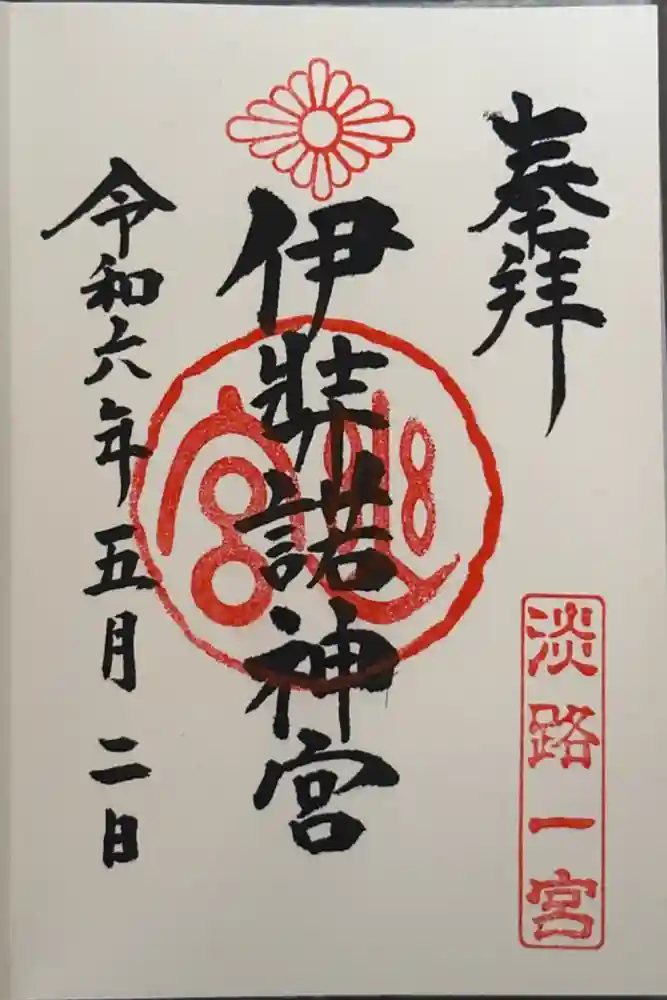 奉拝
淡路一宮
伊弉諾神宮
令和六年五月二日